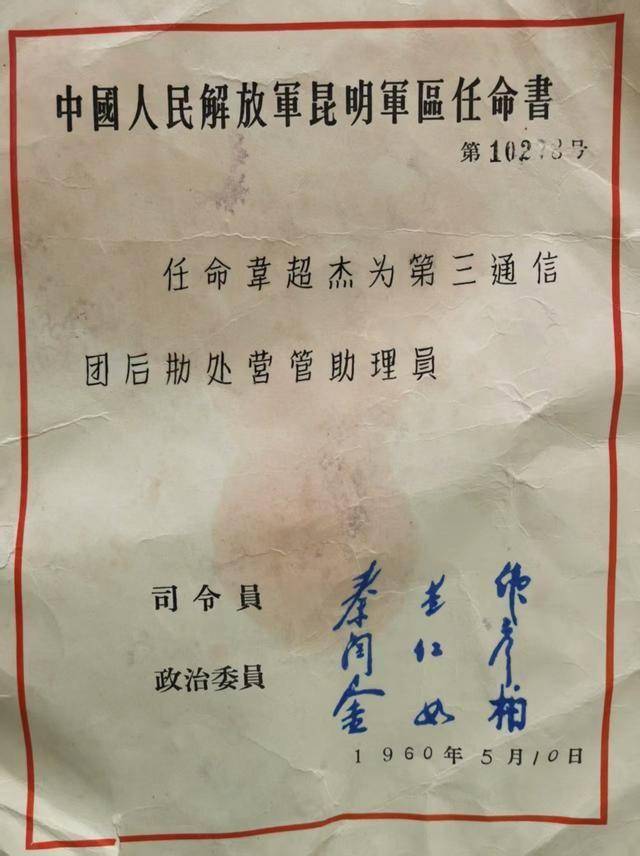 中國人民解放軍昆明軍區任命書
第10278号
任命韋超杰为第三通信
团后勤处营管助理員
司令員 秦基伟
政治委員 闫红彦
金如柏
1960年5月10日